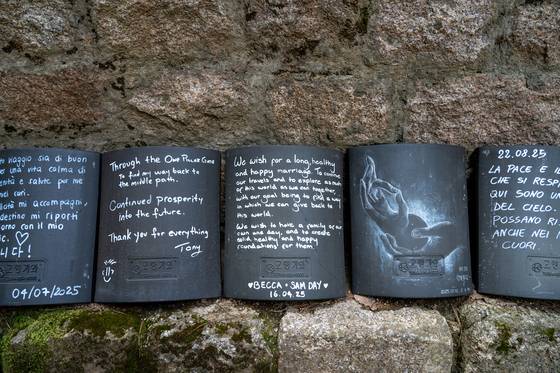 viaggio sia di buon
per una vita colma di
e salute per me
miei cari.
mi accompagni,
destino mi riporti
giorno con il mio
♡
니다!
04/07/2025
Through the One Pillar Gate
To find my way back to
the middle path.
Continued prosperity
into the future.
Thank you for everything
Tony
We wish for a long, healthy
and happy marriage. To continue
our travels and to explore as much
of this world as we can together
with our goal being to find a way
in which we can give back to
this world.
We wish to have a family of our
own one day, and to create
solid healthy and happy
foundations for them!
♥BECCA + SAM DAY♥
16.04.25
22.08.25
LA PACE E IL
CHE SI RESPI
QUI SONO UN
DEL CIELO.
POSSANO
ANCHE NEI
CUORI.